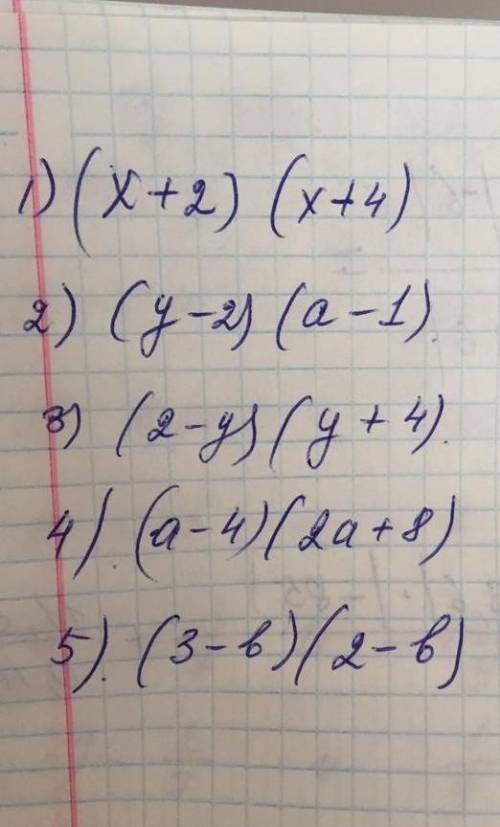 1) (x+2) (x+4)
2) (y-2) (a-1).
3) (2-y) (y+4).
4). (a-4) (2a+8)
5). (3-b) (2-b)